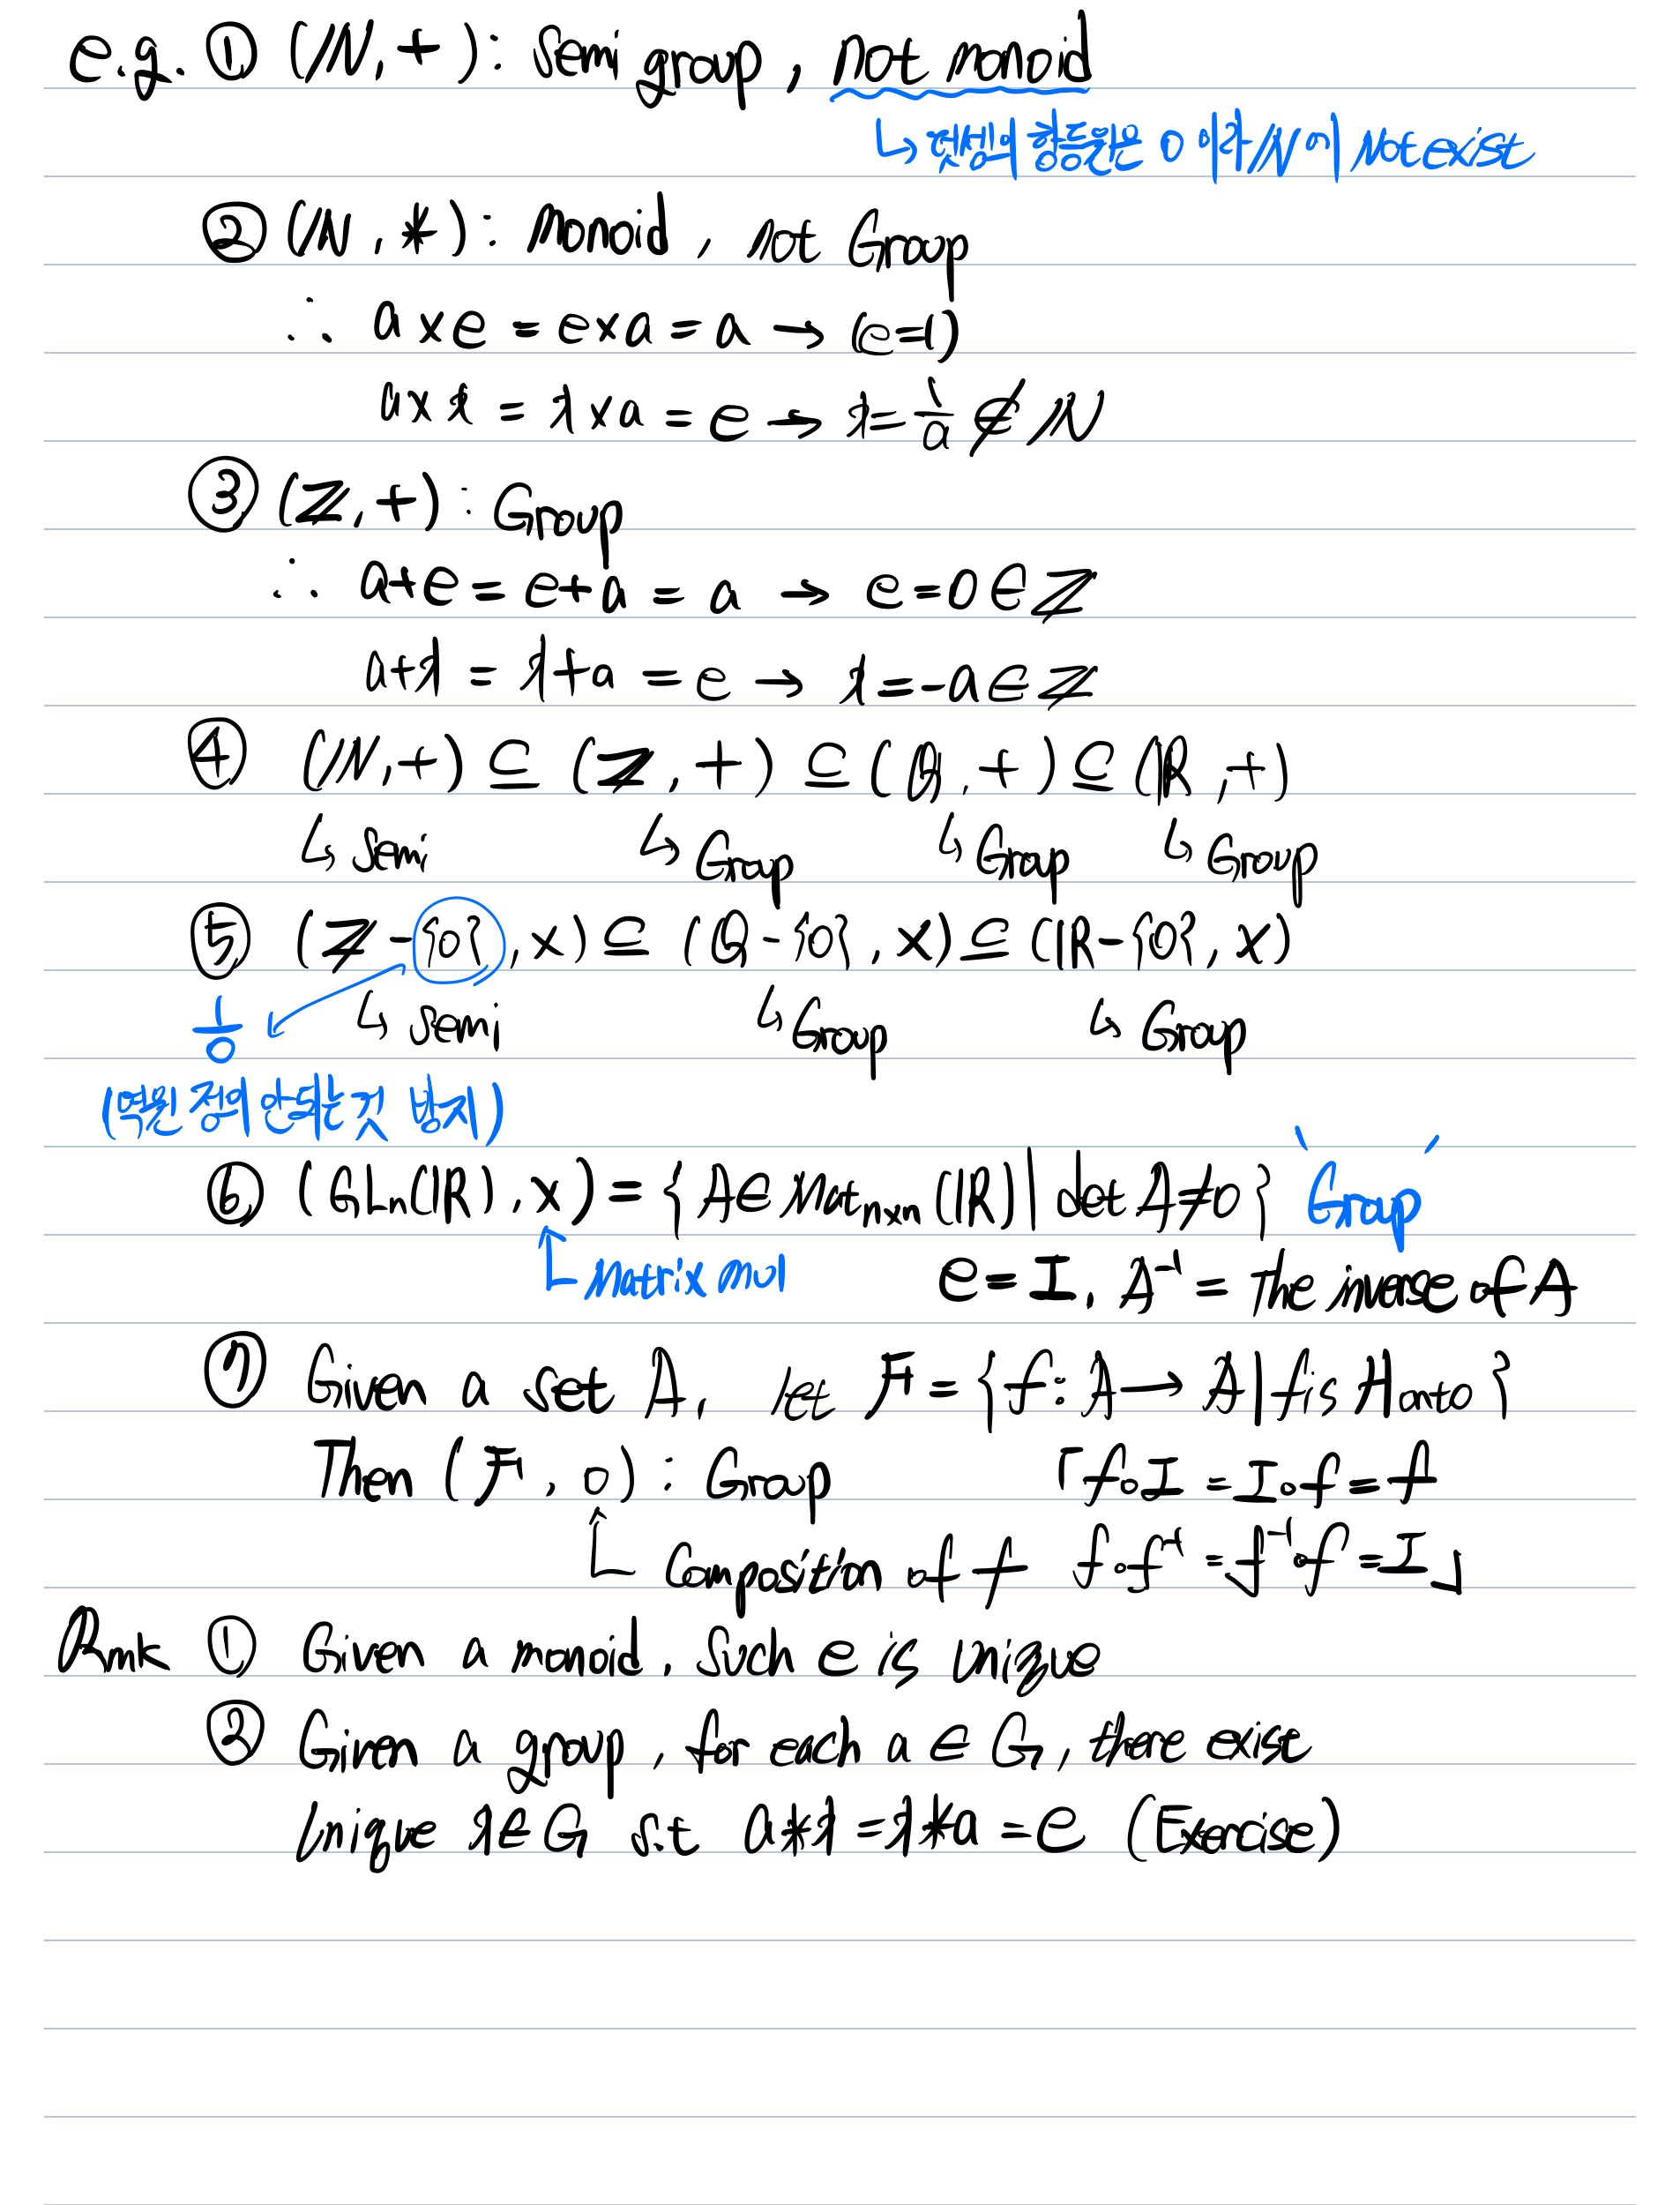 e.g. ① (ℕ, +) : Semi group, not monoid
↳ 덧셈의 항등원은 0 이라 ℕ에 Not exist
② (ℕ, *) : Monoid, not Group
∴ a×e = e×a = a → (e=1)
a×x = x×a = e → x=1/a ∉ ℕ
③ (ℤ, +) : Group
∴ a+e = e+a = a → e=0∈ℤ
a+x = x+a = e → x=-a∈ℤ
④ (ℕ,+) ⊆ (ℤ,+) ⊆ (ℚ,+) ⊆ (ℝ,+)
↳ Semi ↳ Group ↳ Group ↳ Group
⑤ (ℤ-{0},×) ⊆ (ℚ-{0},×) ⊆ (ℝ-{0},×)
1/0 ↳ Semi ↳ Group ↳ Group
(역원 정의 안되는 것 방지)
⑥ (GLn(ℝ), ×) = {A∈Mat n×n (ℝ) | det A≠0} 'Group'
Matrix mul e=I, A⁻¹ = The inverse of A
⑦ Given a set A, let F = {f: A→A | f is 1-1 onto}
Then (F, ∘) : Group 「f∘I = I∘f = f
Composition of f f∘f⁻¹ = f⁻¹∘f = I」
Rmk ① Given a monoid, Such e is unique
② Given a group, for each a∈G, there exist
Unique x∈G s.t a*x = x*a = e (Exercise)